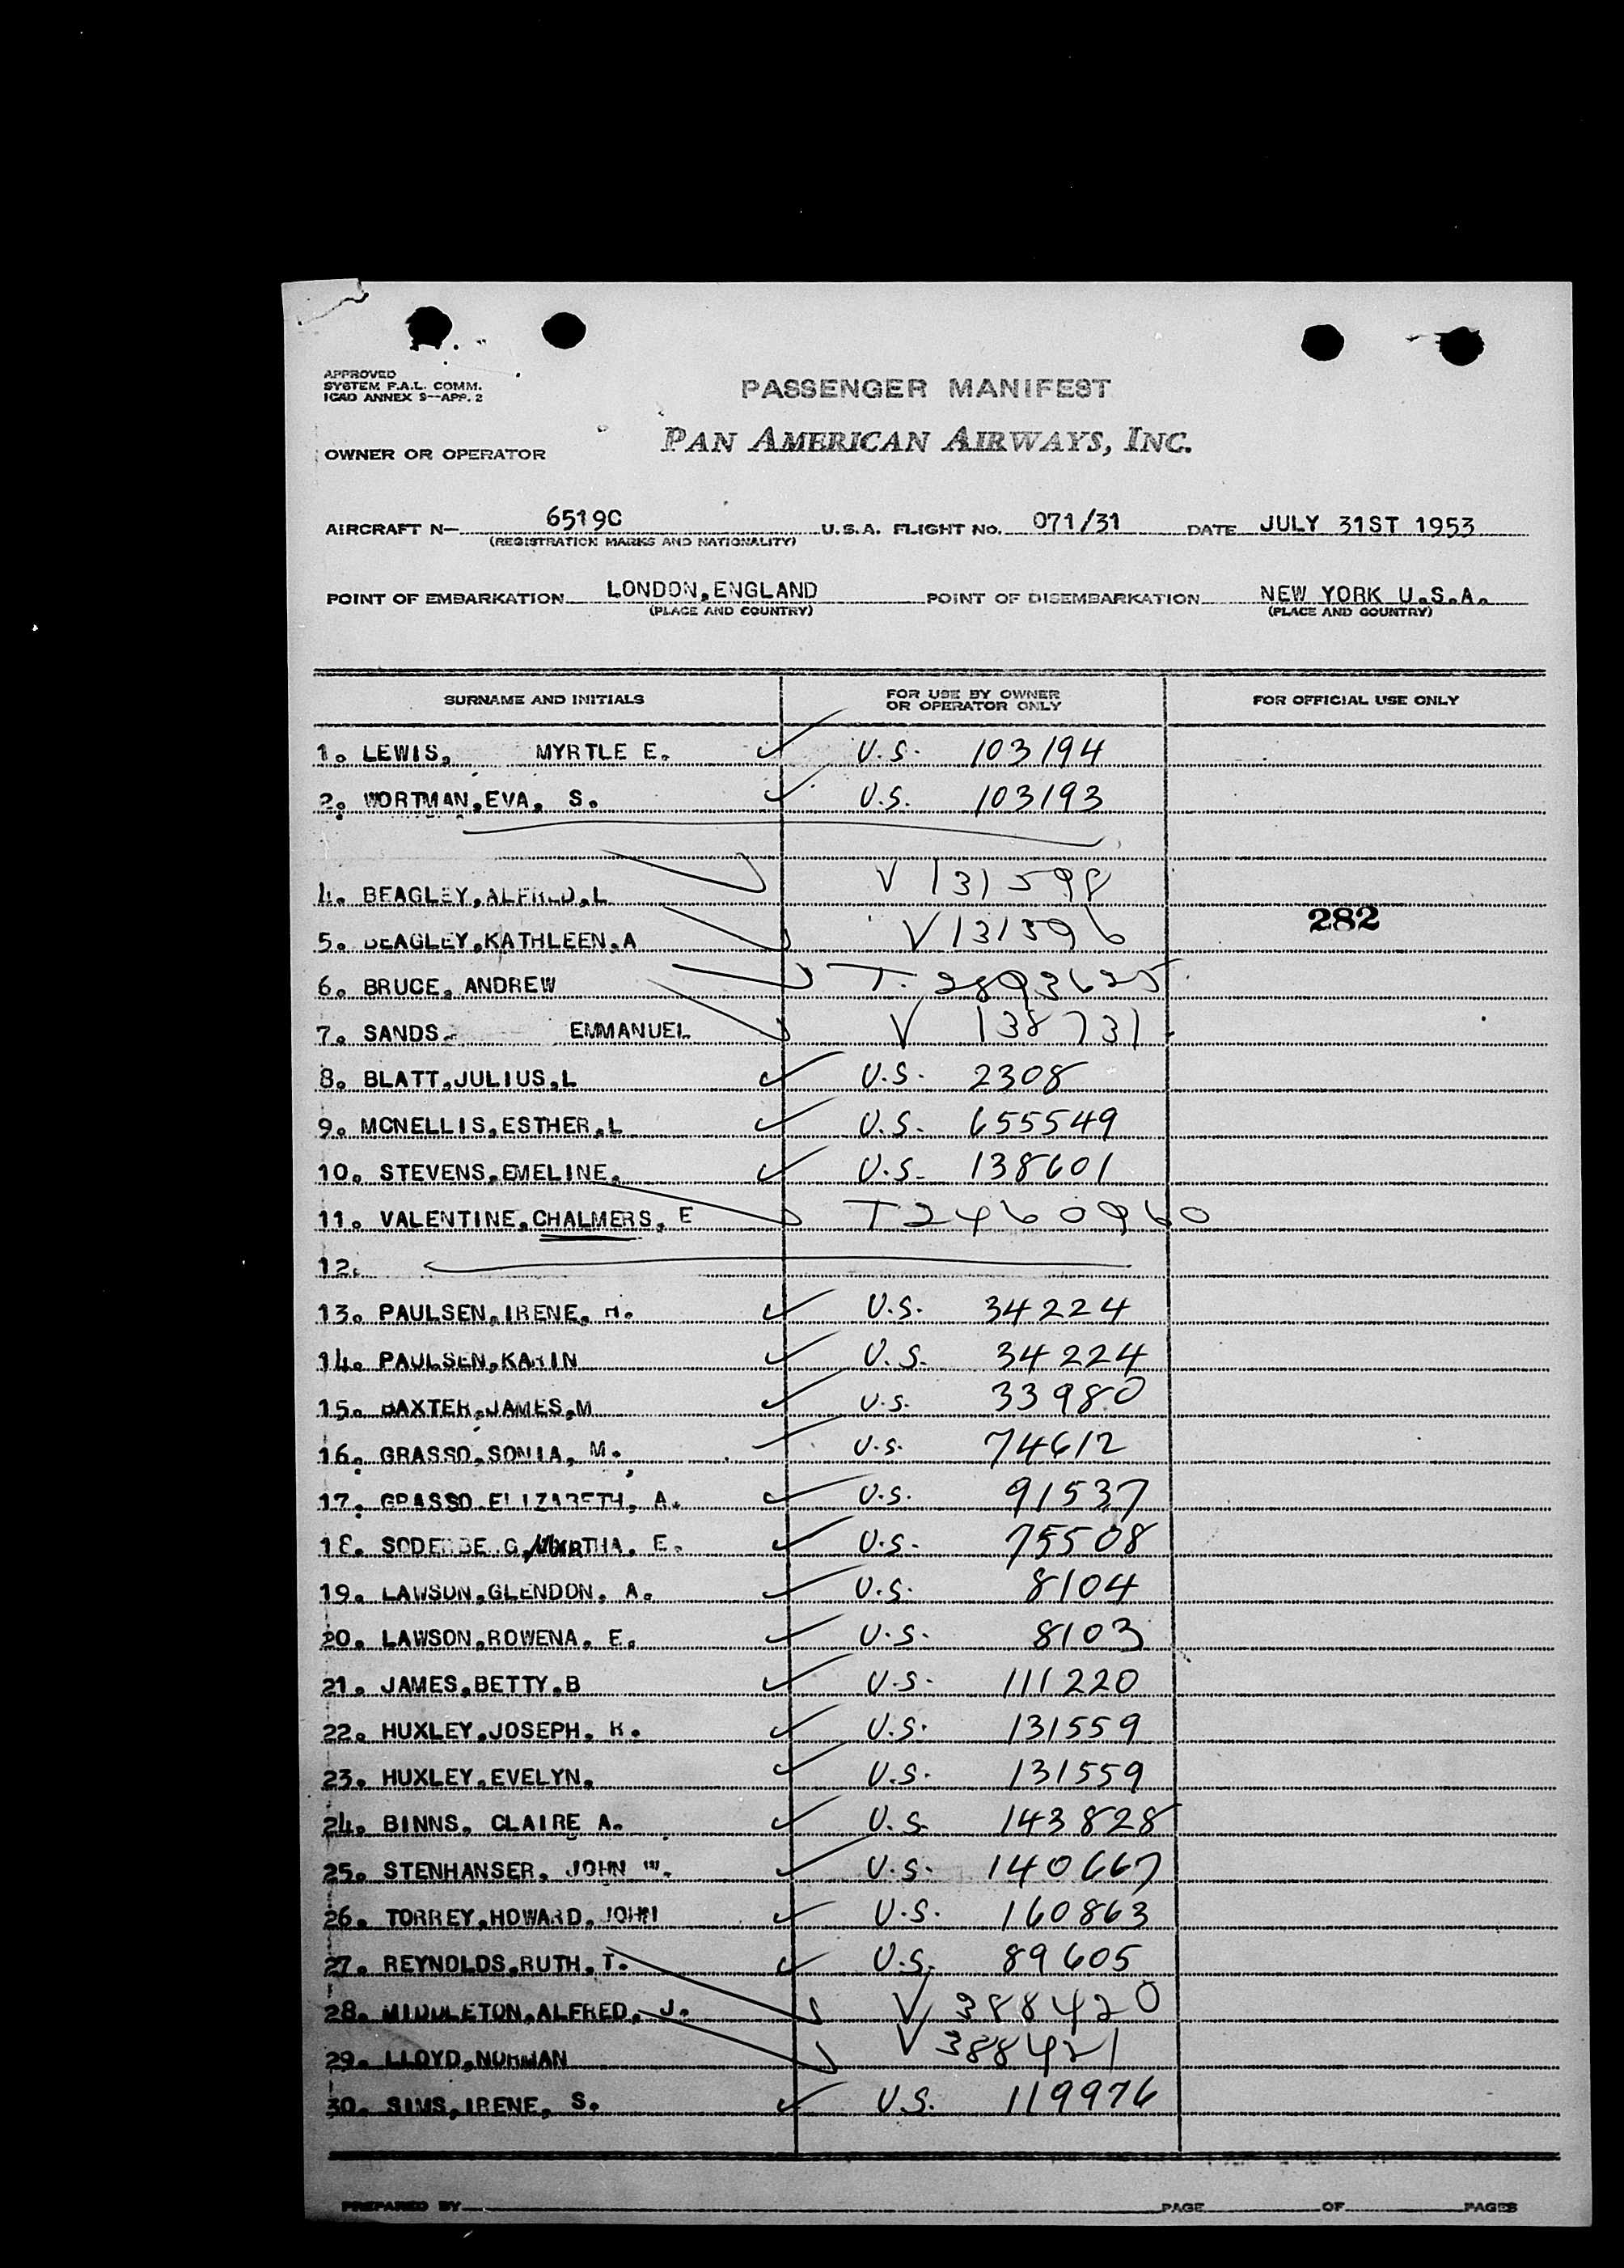 APPROVED
SYSTEM F.A.L. COMM.
ICAO ANNEX 9--APP. 2
PASSENGER MANIFEST
OWNER OR OPERATOR PAN AMERICAN AIRWAYS, INC.
AIRCRAFT N— 6519C U.S.A. FLIGHT NO. 071/31 DATE JULY 31ST 1953
(REGISTRATION MARKS AND NATIONALITY)
POINT OF EMBARKATION LONDON,ENGLAND POINT OF DISEMBARKATION NEW YORK U.S.A.
(PLACE AND COUNTRY) (PLACE AND COUNTRY)
SURNAME AND INITIALS FOR USE BY OWNER OR OPERATOR ONLY FOR OFFICIAL USE ONLY
1. LEWIS, MYRTLE E. U.S. 103194
2. WORTMAN,EVA, S. U.S. 103193
4. BEAGLEY,ALFRED,L V 131598
282
5. BEAGLEY,KATHLEEN,A V 131596
6. BRUCE, ANDREW T. 2893625
7. SANDS- EMMANUEL V 138731
8. BLATT,JULIUS,L U.S. 2308
9. MCNELLIS,ESTHER,L U.S. 655549
10. STEVENS,EMELINE, U.S. 138601
11. VALENTINE,CHALMERS, E T2460960
12.
13. PAULSEN,IRENE, H. U.S. 34224
14. PAULSEN,KARIN U.S. 34224
15. BAXTER,JAMES,M U.S. 33980
16. GRASSO,SONIA, M. U.S. 74612
17. GRASSO ELIZABETH, A. U.S. 91537
18. E. U.S. 75508
19. LAWSON,GLENDON, A. U.S. 8104
20. LAWSON,ROWENA, E. U.S. 8103
21. JAMES,BETTY,B U.S. 111220
22. HUXLEY,JOSEPH, R. U.S. 131559
23. HUXLEY,EVELYN, U.S. 131559
24. BINNS, CLAIRE A. U.S. 143828
25. STENHANSER, JOHN W. U.S. 140667
26. TORREY,HOWARD,JOHN U.S. 160863
27. REYNOLDS,RUTH,T. U.S. 89605
28. MIDDLETON,ALFRED, J. V 388420
29. LLOYD,NORMAN V 388421
30. SIMS,IRENE, S. U.S. 119976
PREPARED BY PAGE OF PAGES